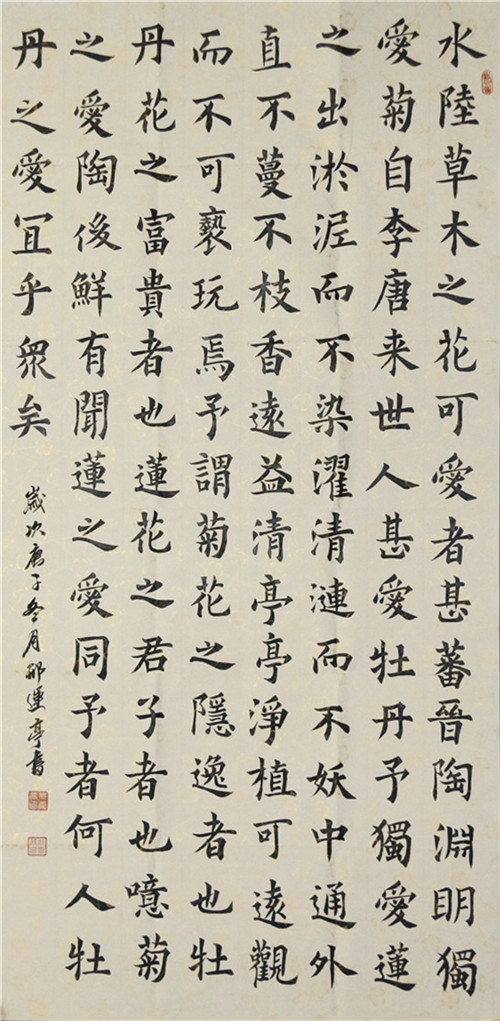 水陸草木之花可愛者甚蕃晉陶淵明獨
愛菊自李唐来世人甚愛牡丹予獨愛蓮
之出淤泥而不染濯清漣而不妖中通外
直不蔓不枝香遠益清亭亭淨植可遠觀
而不可褻玩焉予謂菊花之隱逸者也牡
丹花之富貴者也蓮花之君子者也噫菊
之愛陶後鮮有聞蓮之愛同予者何人牡
丹之愛冝乎衆矣
歲次庚子冬月邢亭書